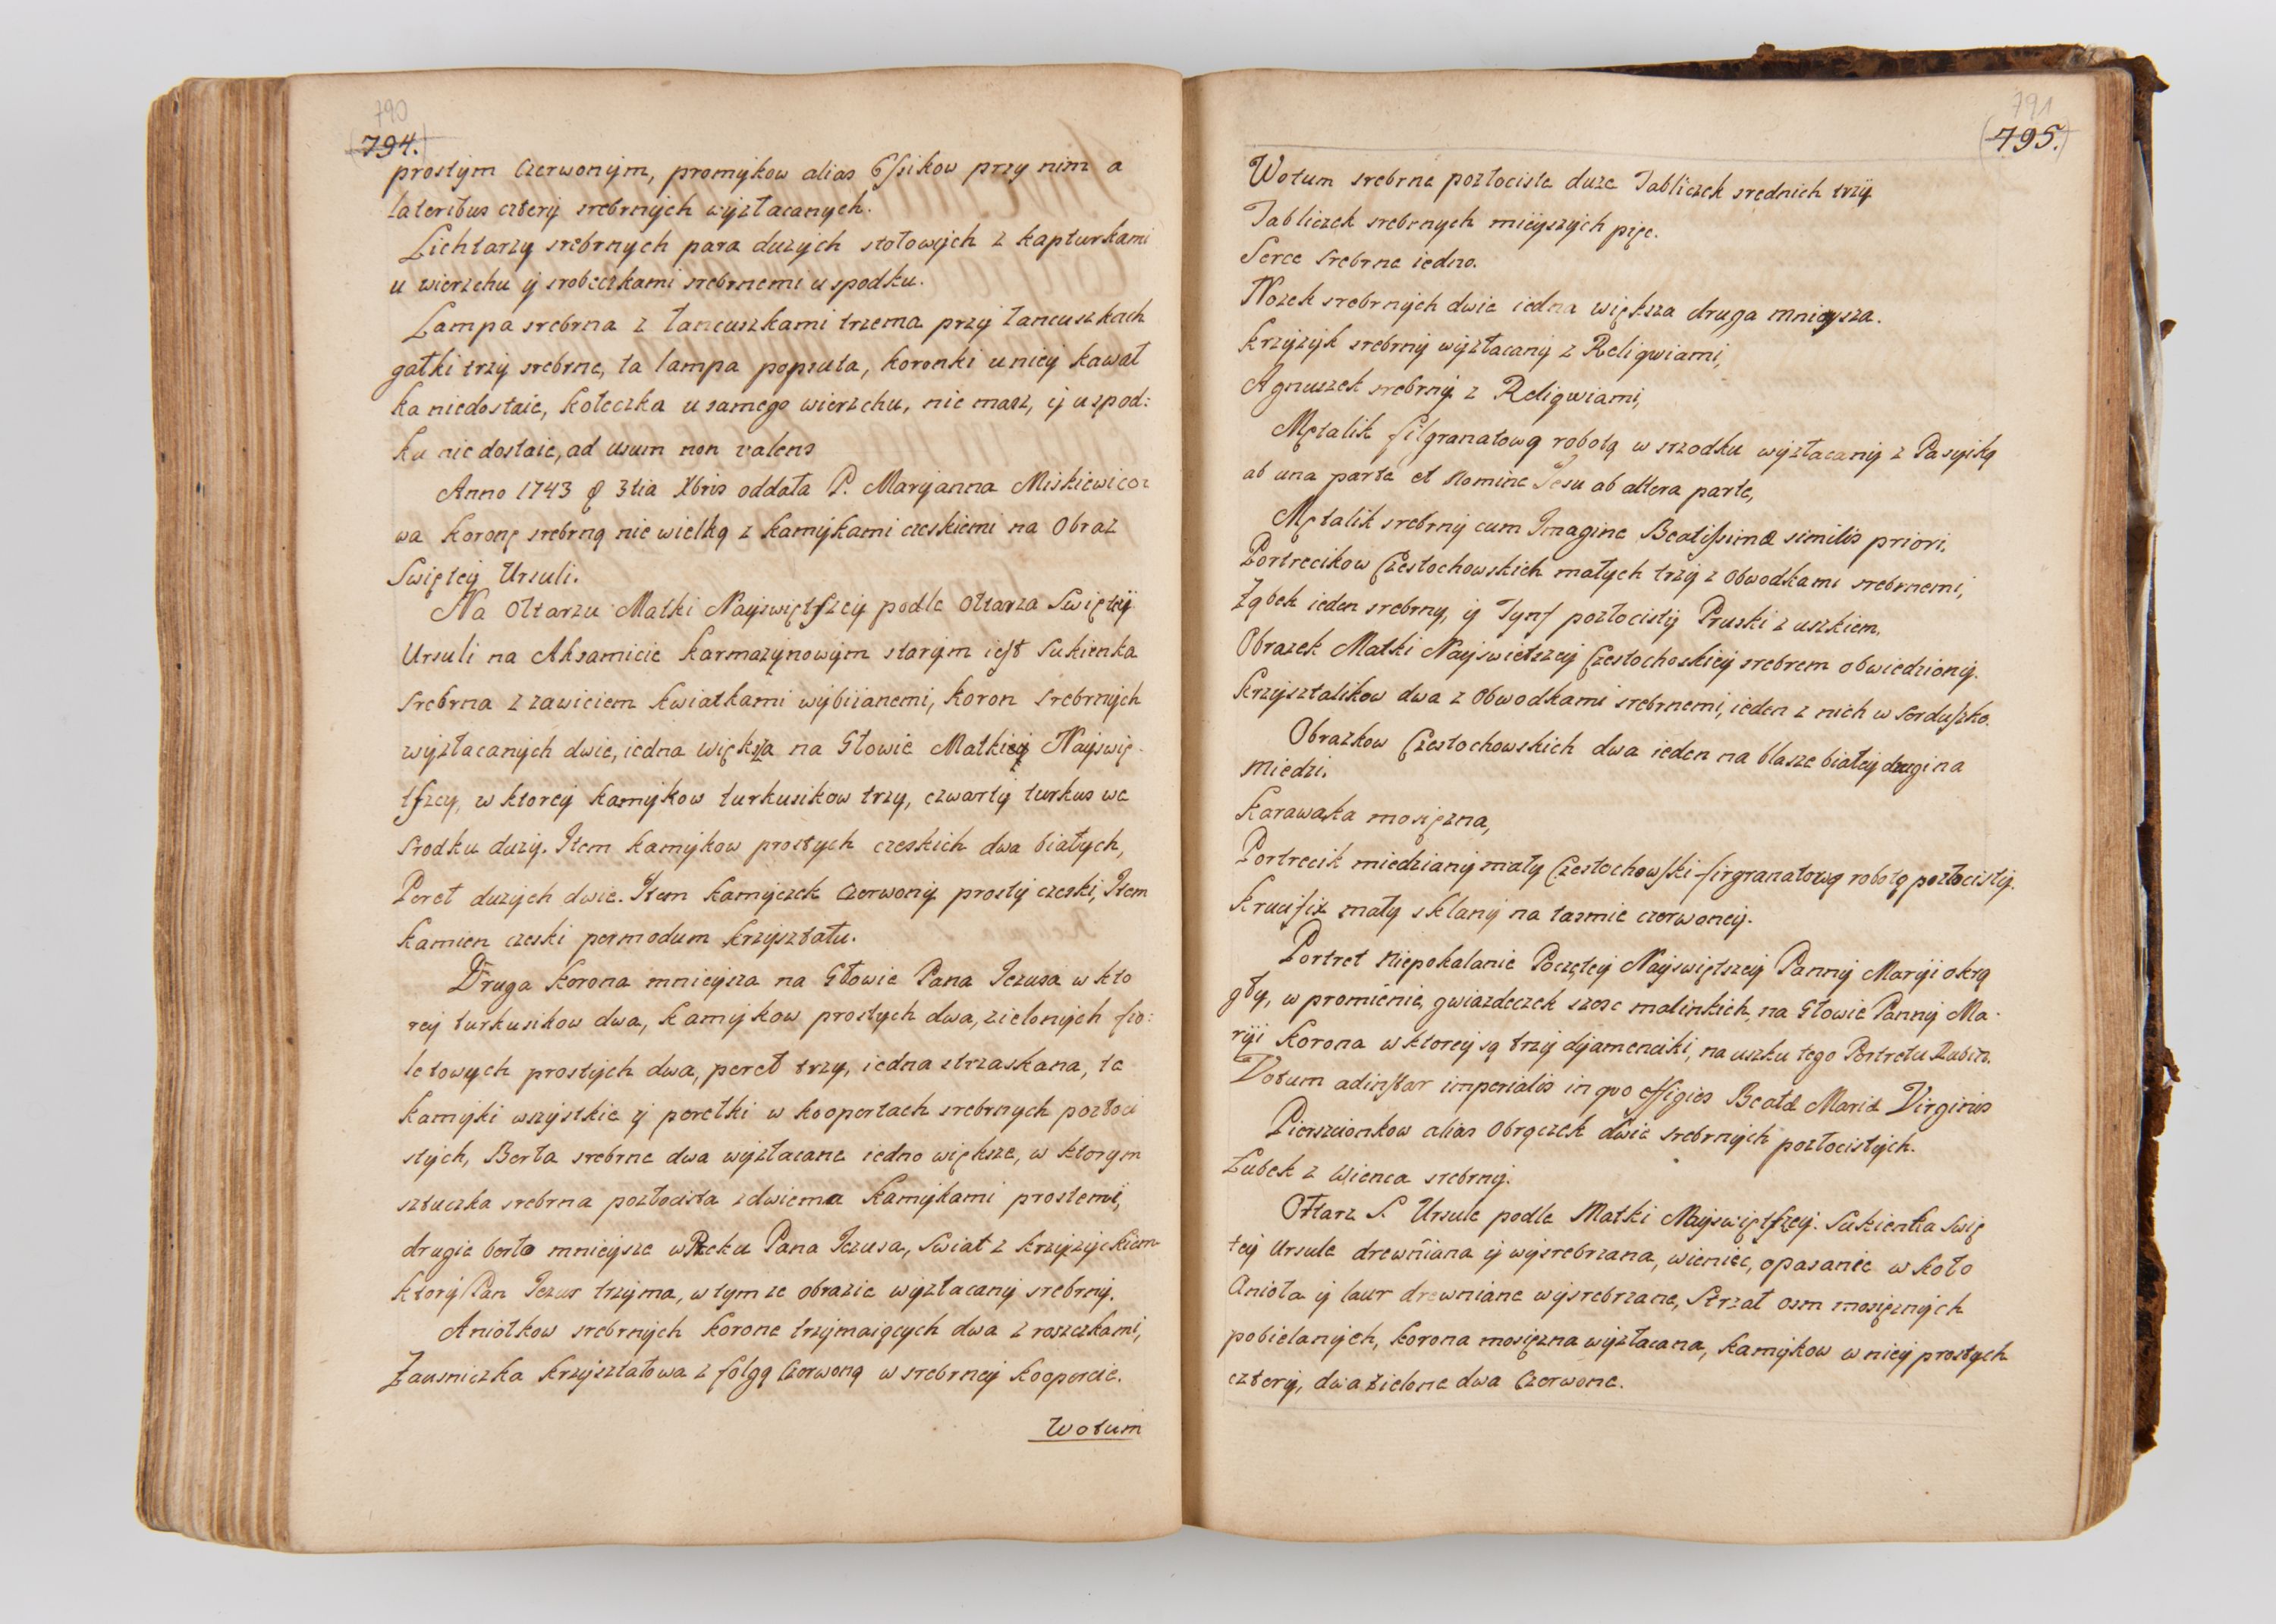 790
794.
prostym Czerwonym, promykow alias przy nim a
lateribus cztery srebrnych wyzłacanych.
Lichtarzy srebrnych para duzych stołowych z kapturkami
u wierzchu y srobeczkami srebrnemi u spodku.
Lampa srebrna z łancuszkami trzema przy łancuszkach
gałki trzy srebrne, ta lampa popsuta, koronki u niey kawał
ka niedostaie, kołeczka u samego wierzchu, nie masz, y u spod:
ku nie dostaie, ad usum non valens
Anno 1743 3tia Xbris oddała P. Maryanna Miskiewicz
wa koronę srebrną nie wielką z kamykami czeskiemi na Obraz
Swiętey Ursuli.
Na Ołtarzu Matki Nayswiętszey podle Ołtarza Swiętey
Ursuli na Aksamicie karmazynowym starym iest Sukienka
srebrna z zawiciem kwiatkami wybiianemi, koron srebrnych
wyzłacanych dwie, iedna większa na Głowie Matki Nayswię-
tszey, w ktorey kamykow turkusikow trzy, czwarty turkus we
srodku duzy. Item kamykow prostych czeskich dwa białych,
Pereł duzych dwie. Item kamyczek Czerwony prosty czeski, Item
kamien czeski per modum krzyształu.
Druga korona mnieysza na Głowie Pana Jezusa w kto
rey turkusikow dwa, kamykow prostych dwa, zielonych fio:
letowych prostych dwa, pereł trzy, iedna strzaskana, te
kamyki wszystkie y perełki w koopertach srebrnych pozłoci
stych, Berła srebrne dwa wyzłacane iedno większe, w ktorym
sztuczka srebrna pozłocista z dwiema kamykami prostemi,
drugie berło mnieysze w Ręku Pana Jezusa, Swiat z krzyzyckiem
ktory Pan Jezus trzyma, w tym ze obrazie wyzłacany srebrny.
Aniołkow srebrnych korone trzymaiących dwa z roszczkami,
Zausniczka krzyształowa z folgą Czerwoną w srebrney kooperdie.
Wotum
791
795.
Wotum srebrne pozłociste duze Tabliczek srednich trzy
Tabliczek srebrnych mieyszych pięc.
Serce Srebrne iedno.
Nozek srebrnych dwie iedna większa druga mnieysza.
krzyzyk srebrny wyzłacany z Religwiami,
Agnuszek srebrny z Religwiami,
Mętalik filgranatową robotą w srzodku wyzłacany z Pasyiką
ab una parte et Nomine Jesu ab altera parte,
Mętalik srebrny cum Imagine Beatissimæ similis priori.
Portrecikow Czestochowskich małych trzy z obwodkami srebrnemi,
Ząbek ieden srebrny, y Tynf pozłocisty Pruski z uszkiem.
Obrazek Matki Nayswietszey Czestochoskiey srebrem obwiedziony.
krzysztalikow dwa z Obwodkami srebrnemi, ieden z nich w Serduszko.
Obrazkow Czestochowskich dwa ieden na blasze białey drugi na
Miedzi.
karawaka mosięzna,
Portrecik miedziany mały Czestochowski firgranatową robotą pozłocisty.
krucifix mały sklany na tasmie czerwoney.
Portret Niepokalanie Poczętey Nayswiętszey Panny Maryi okrą
gły, w promienie, gwiazdeczek szesc malinkich, na Głowie Panny Ma-
ryi korona w ktorey są trzy dyamenciki, na uszku tego Portretu Rubin.
Votum ad instar imperialis in quo effigies Beatæ Mariæ Virginis
Pierscionkow alias Obrączek dwie srebrnych pozłocistych.
Lubek z wienca srebrny.
Ołtarz S. Ursule podle Matki Nayswiętszey. Sukienka Swię
tey Ursule drewniana y wysrebrzana, wieniec, opasanie w koło
Anioła y laur drewniane wysrebrzane, Strzał osm mosięznych
pobielanych, korona mosięzna wyzłacana, kamykow w niey prostych
cztery, dwa zielone dwa Czerwone.